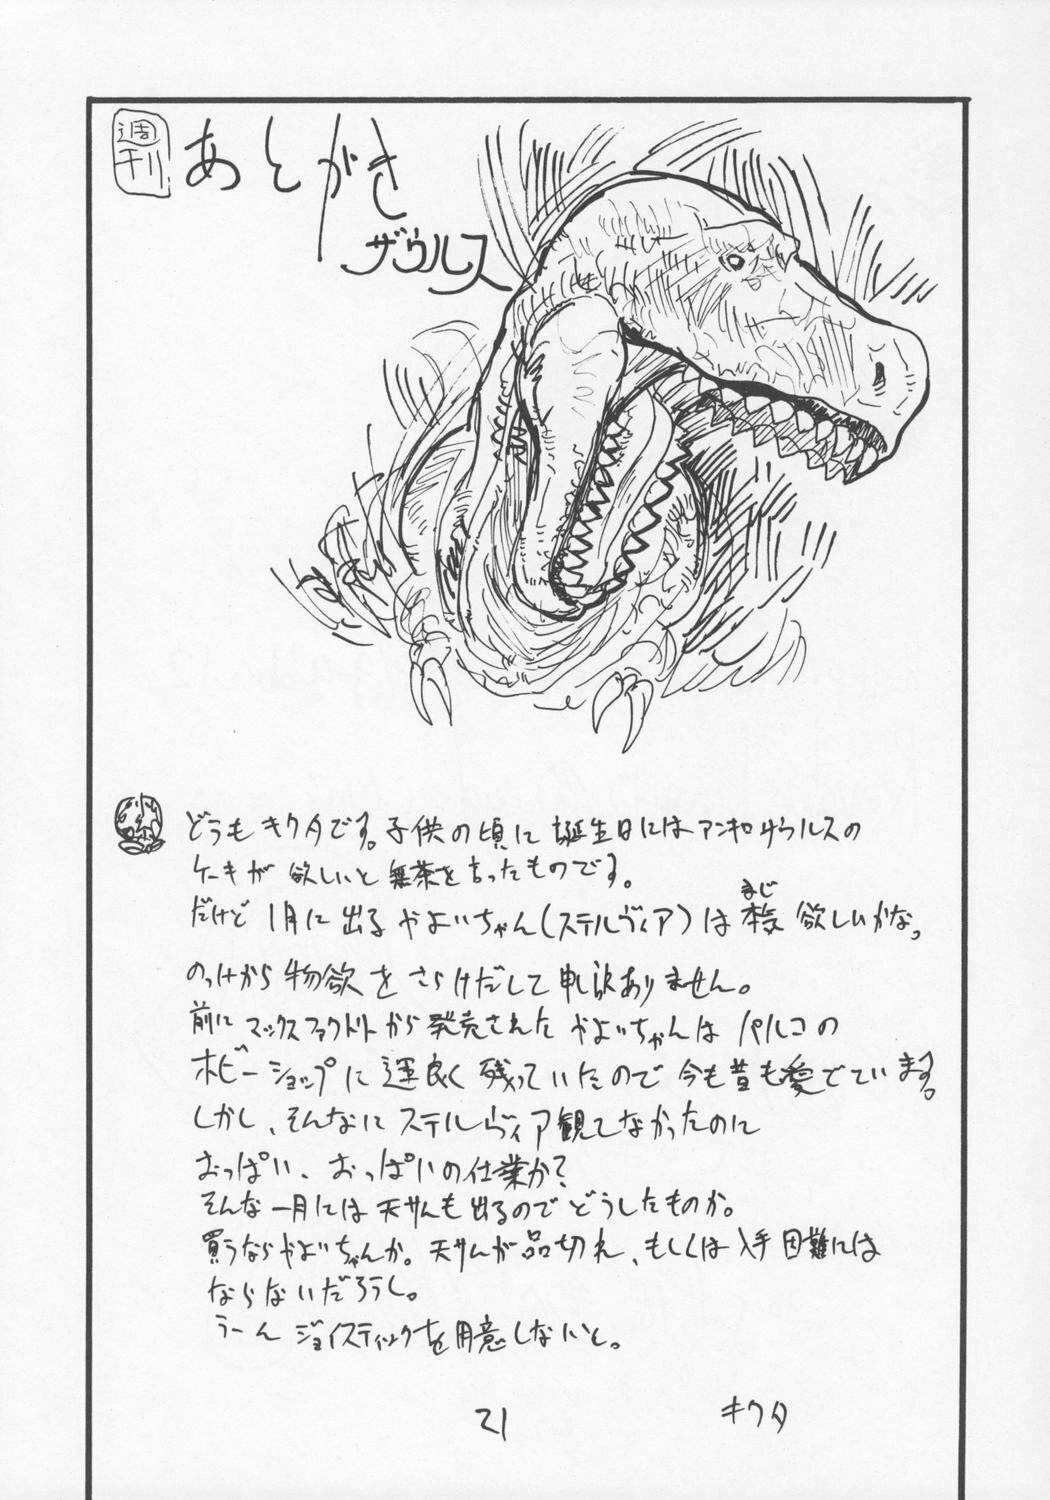 週刊
あとがき
ザウルス
どうもキクタです。子供の頃に誕生日にはアンキロザウルスの
ケーキが欲しいと無茶を言ったものです。
だけど1月に出るやよいちゃん(ステルヴィア)は本気欲しいかな。
まじ
のっけから物欲をさらけだして申し訳ありません。
前にマックスファクトリーから発売されたやよいちゃんはパルコの
ホビーショップに運良く残っていたので今も昔も愛でています。
しかし、そんなにステルヴィア観てなかったのに
おっぱい、おっぱいの仕業か?
そんな一月には天サんも出るのでどうしたものか。
買うならやよいちゃんか。天サんが品切れ、もしくは入手困難には
ならないだろうし。
うーんジョイスティックを用意しないと。
21
キクタ